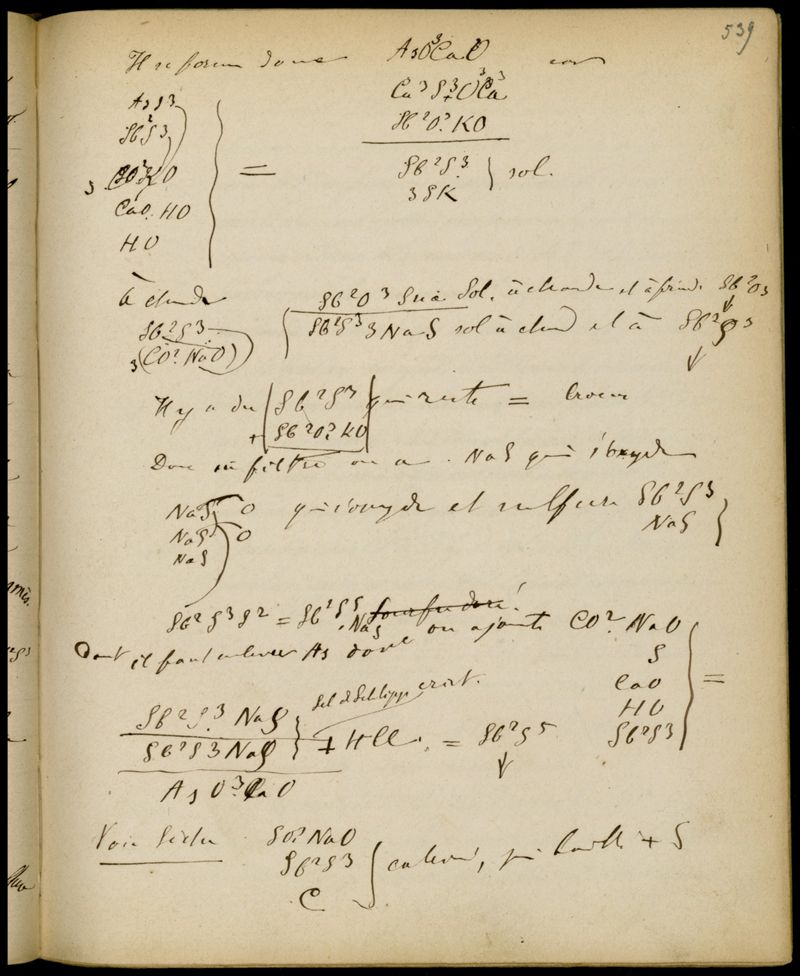 539
Il se forme donc AsO³CaO
Ca³S³+O³Ca³
Sb²O³.KO
AsS³
Sb²S³
3 CO².KO
CaO.HO
HO
=
Sb²S³.
3SK } sol.
à chaud
Sb²S³
3(CO².NaO)
Sb²O³ Sol. à chaud et à froid Sb²O³
Sb²S³3NaS sol à chaud et à Sb²O³
Il y a du Sb²S³ qui reste =
+ Sb²O³.KO
Donc on filtre on a NaS qui s'oxyde
NaS O qui s'oxyde et sulfure Sb²S³
NaS O NaS
NaS
Sb²S³S² = Sb²S⁵.NaS
Dont il faut enlever As donc on ajoute CO².NaO
S
CaO
HO
Sb²S³
=
Sel de Schlippe crist.
Sb²S³.NaS
Sb²S³NaS + HCl. = Sb²S⁵
AsO³.CaO
Voie Sèche SO³NaO
Sb²S³
C
qui + S